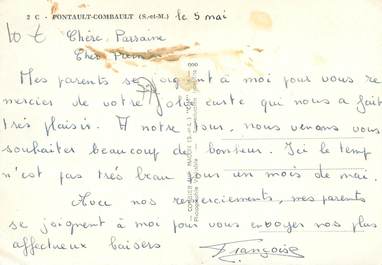 2 C - PONTAULT-COMBAULT (S.-et-M.) le 5 mai
Chère Parraine
Cher
Mes parents se joignent à moi pour vous re
mercier de votre jolie carte qui nous a fait
très plaisir. A notre tour, nous venons vous
souhaiter beaucoup de bonheur. Ici le temp
n'est pas très beau pour un mois de mai.
Avec nos remerciements, mes parents
se joignent à moi pour vous envoyer nos plus
affectueux baisers
Françoise